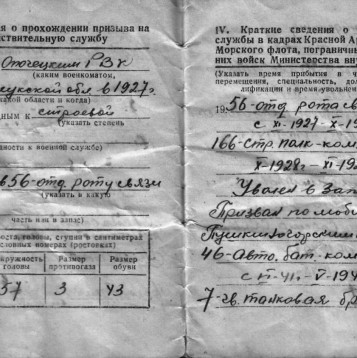 я о прохождении призыва на
ствительную службу
Опочецким РВК
(каким военкоматом,
ской обл в 1927 г.
кой области и когда)
ным к строевой
(указать степень
ности к военной службе)
в 56-отд. роту связи
(указать в какую
часть или в запас)
оста, головы, ступни в сантиметрах
словных номерах (ростовках)
кружность
головы
Размер
противогаза
Размер
обуви
57
3
43
IV. Краткие сведения о
службы в кадрах Красной Ар
Морского флота, пограничны
них войск Министерства вну
(Указать время прибытия в ча
перемещения, специальность, дол
лификации и время увольнения
56-отд. рота связ
с XI-1927 - X-19
166-стр. полк-ком
X-1928 г.- XI-19
Уволен в Зап
Призван по моби
Пушкиногорским
46-Авто. бат.-ком
7-гв. танковая бр